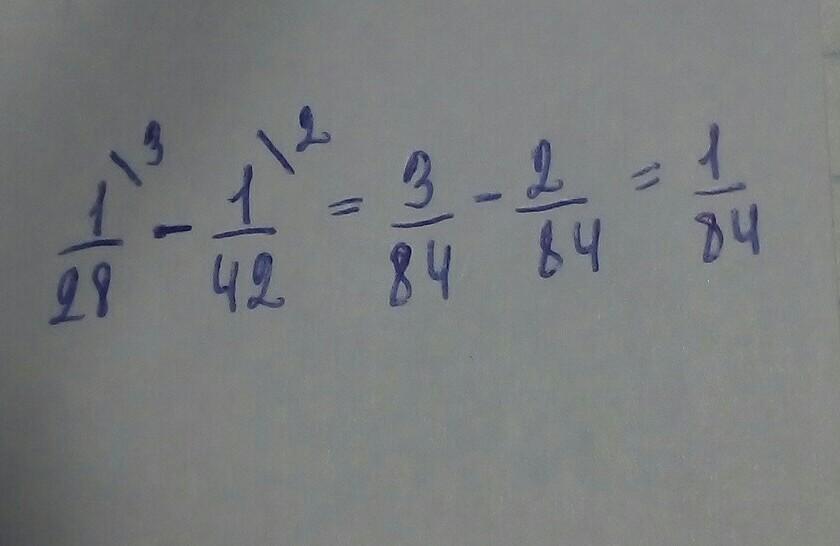 1/28\3 - 1/42\2 = 3/84 - 2/84 = 1/84